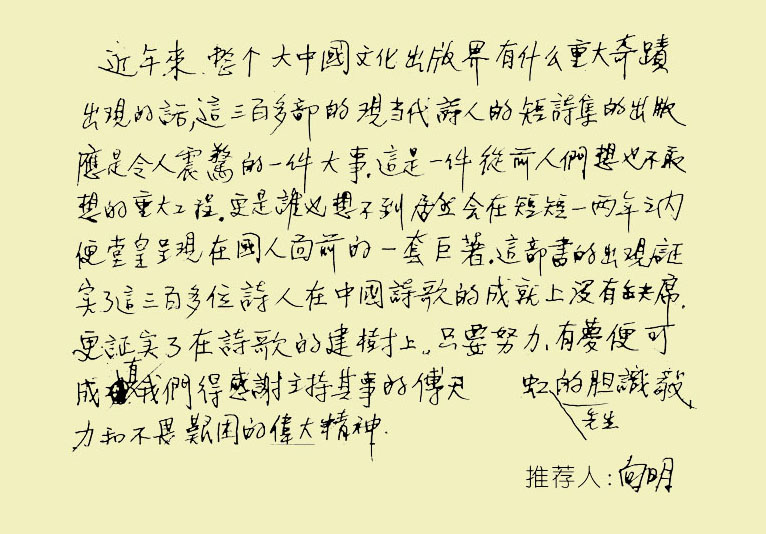 近年來.整个大中國文化出版界有什么重大奇蹟
出現的話,這三百多部的現当代詩人的短詩集的出版
應是令人震驚的一件大事.這是一件從前人們想也不敢
想的重大工程.更是誰也想不到居然会在短短一两年之内
便堂皇呈現在國人面前的一套巨著.這部書的出現証
实了這三百多位詩人在中國詩歌的成就上没有缺席.
更証实了在詩歌的建樹上,只要努力,有夢便可
成真我們得感謝主持其事的傅天虹的胆識毅
先生
力和不畏艱困的偉大精神.
推荐人:向明